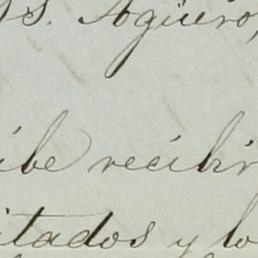 S. Agüero,
ibe recibir
itados y lo